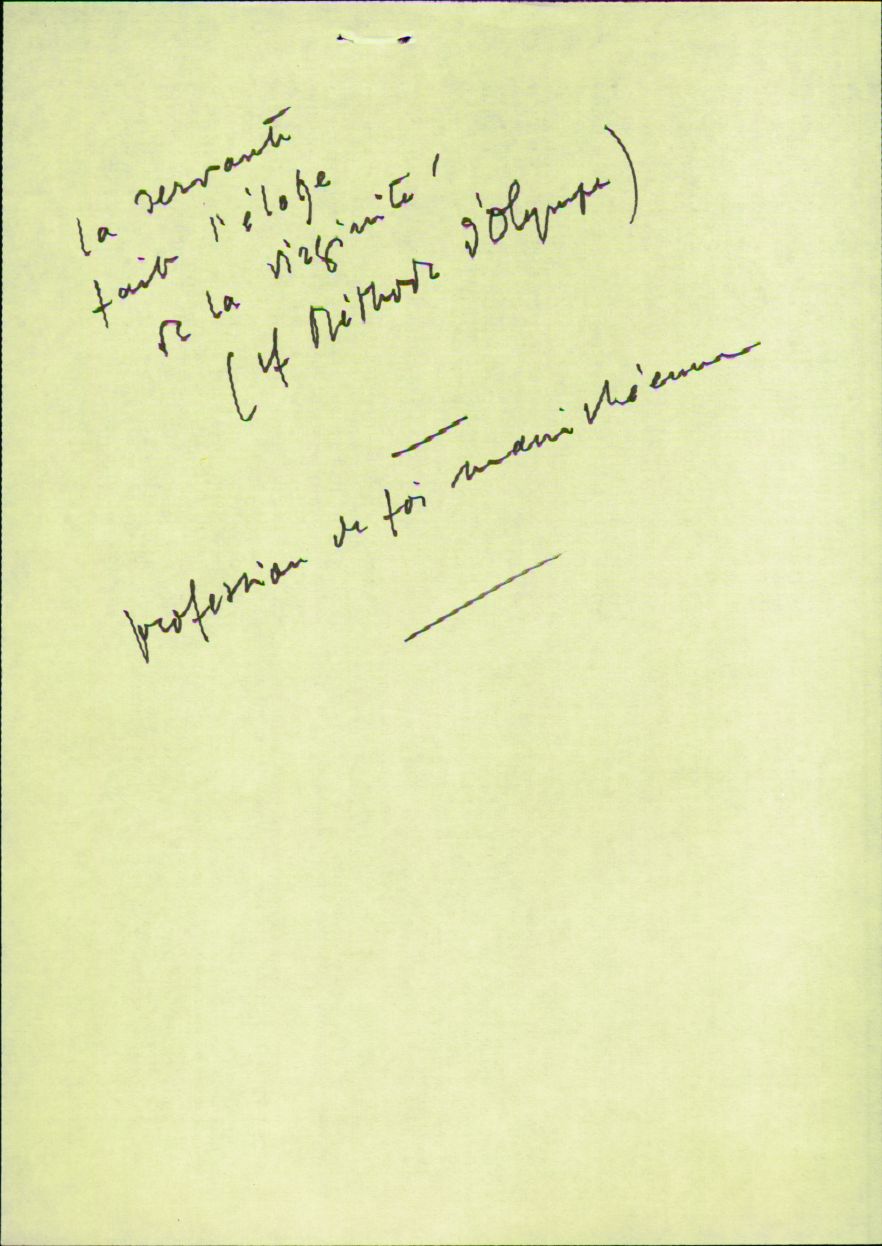 la servante
fait l'éloge
de la virginité
(cf Méthode d'Olympe)
profession de foi manichéenne